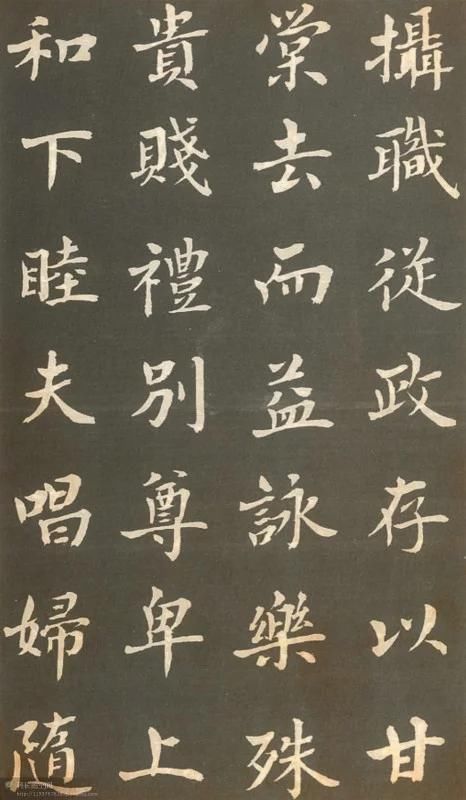 攝職從政存以甘
棠去而益詠樂殊
貴賤禮別尊卑上
和下睦夫唱婦隨